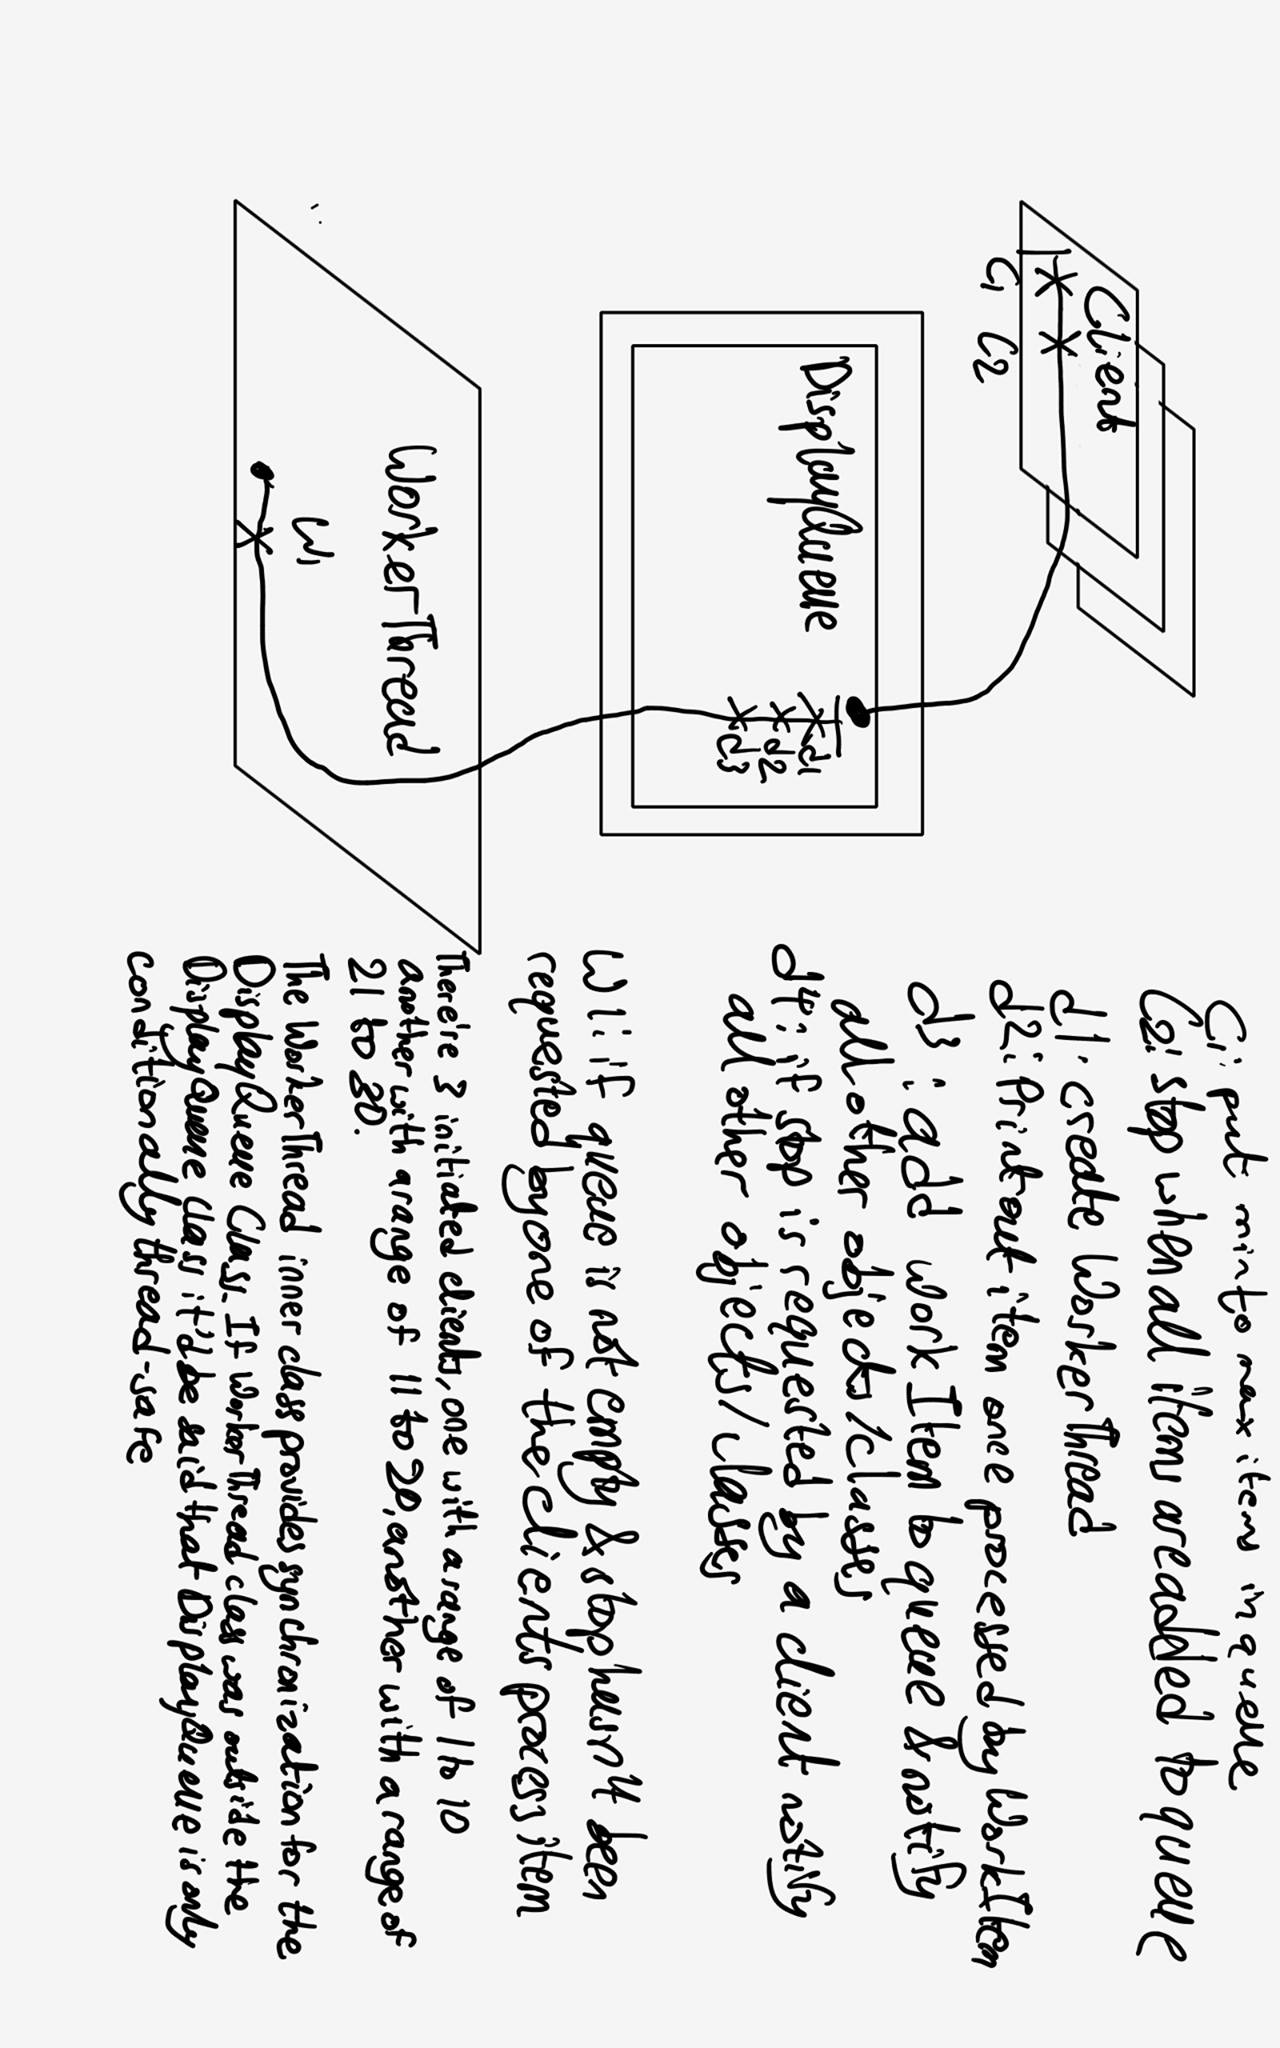 Client
C1 C2
DisplayQueue
d1
d2
d3
WorkerThread
W1
C1: put min to max items in queue
C2: stop when all items are added to queue
d1: create WorkerThread
d2: Print out item one processed by WorkItem
d3: add work Item to queue & notify
all other objects/classes
d4: if stop is requested by a client notify
all other objects/classes
W1: if queue is not empty & stop hasn't been
requested by one of the clients process item
There're 3 initiated clients, one with a range of 1 to 10
another with a range of 11 to 20, another with a range of
21 to 30.
The WorkerThread inner class provides synchronization for the
DisplayQueue Class. If WorkerThread class was outside the
DisplayQueue Class it'd be said that DisplayQueue is only
conditionally thread-safe